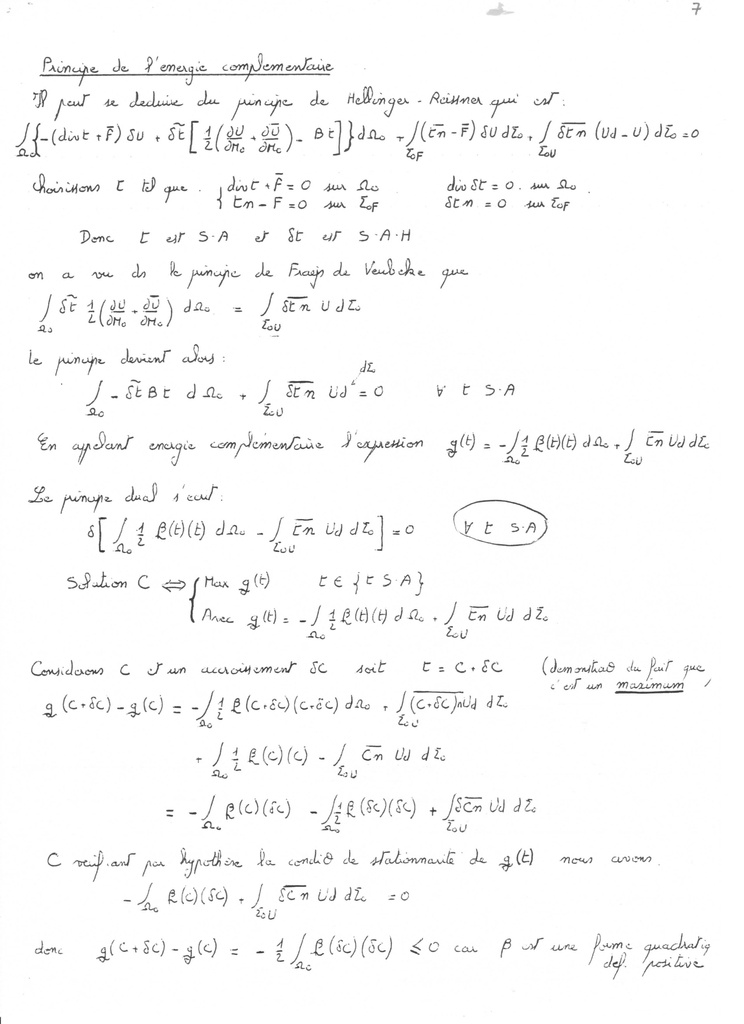 7
Principe de l'energie complementaire
Il peut se deduire du principe de Hellinger-Reissner qui est :
∫_Ω₀ {-(div t + F̄) δU + δt̃ [½(∂U/∂M₀ + ∂Ū/∂M₀) - Bt]} dΩ₀ + ∫_Σ₀F (t̄n̄ - F̄) δU dΣ₀ + ∫_Σ₀U δt̄n̄ (Ud - U) dΣ₀ = 0
Choisissons t tel que . { div t + F̄ = 0 sur Ω₀ div δt = 0 . sur Ω₀
tn - F = 0 sur Σ₀F δtn = 0 sur Σ₀F
Donc t est S.A et δt est S.A.H
on a vu ds le principe de Fraejs de Veubeke que
∫_Ω₀ δt̃ ½(∂U/∂M₀ + ∂Ū/∂M₀) dΩ₀ = ∫_Σ₀U δt̄n̄ U dΣ₀
Le principe devient alors :
∫_Ω₀ - δt̃ Bt dΩ₀ + ∫_Σ₀U δt̄n̄ Ud dΣ₀ = 0 ∀ t S.A
En appelant energie complémentaire l'expression g(t) = -∫_Ω₀ ½ β(t)(t) dΩ₀ + ∫_Σ₀U t̄n̄ Ud dΣ₀
Le principe dual s'ecrit :
δ[∫_Ω₀ ½ β(t)(t) dΩ₀ - ∫_Σ₀U t̄n̄ Ud dΣ₀] = 0 ∀ t S.A
Solution C ⇔ { Max g(t) t ∈ {t S.A}
Avec g(t) = -∫_Ω₀ ½ β(t)(t) dΩ₀ + ∫_Σ₀U t̄n̄ Ud dΣ₀
Considerons C et un accroissement δC soit t = C + δC (demonstraθ du fait que
c'est un maximum)
g(C+δC) - g(C) = -∫_Ω₀ ½ β(C+δC)(C+δC) dΩ₀ + ∫_Σ₀U (C+δC)n Ud dΣ₀
+ ∫_Ω₀ ½ β(C)(C) - ∫_Σ₀U C̄n̄ Ud dΣ₀
= -∫_Ω₀ β(C)(δC) - ∫_Ω₀ ½ β(δC)(δC) + ∫_Σ₀U δC̄n̄ Ud dΣ₀
C verifiant par hypothèse la condiθ de stationnarité de g(t) nous avons.
-∫_Ω₀ β(C)(δC) + ∫_Σ₀U δC̄n̄ Ud dΣ₀ = 0
donc g(C+δC) - g(C) = -½ ∫_Ω₀ β(δC)(δC) ≤ 0 car β est une forme quadratiq
def. positive